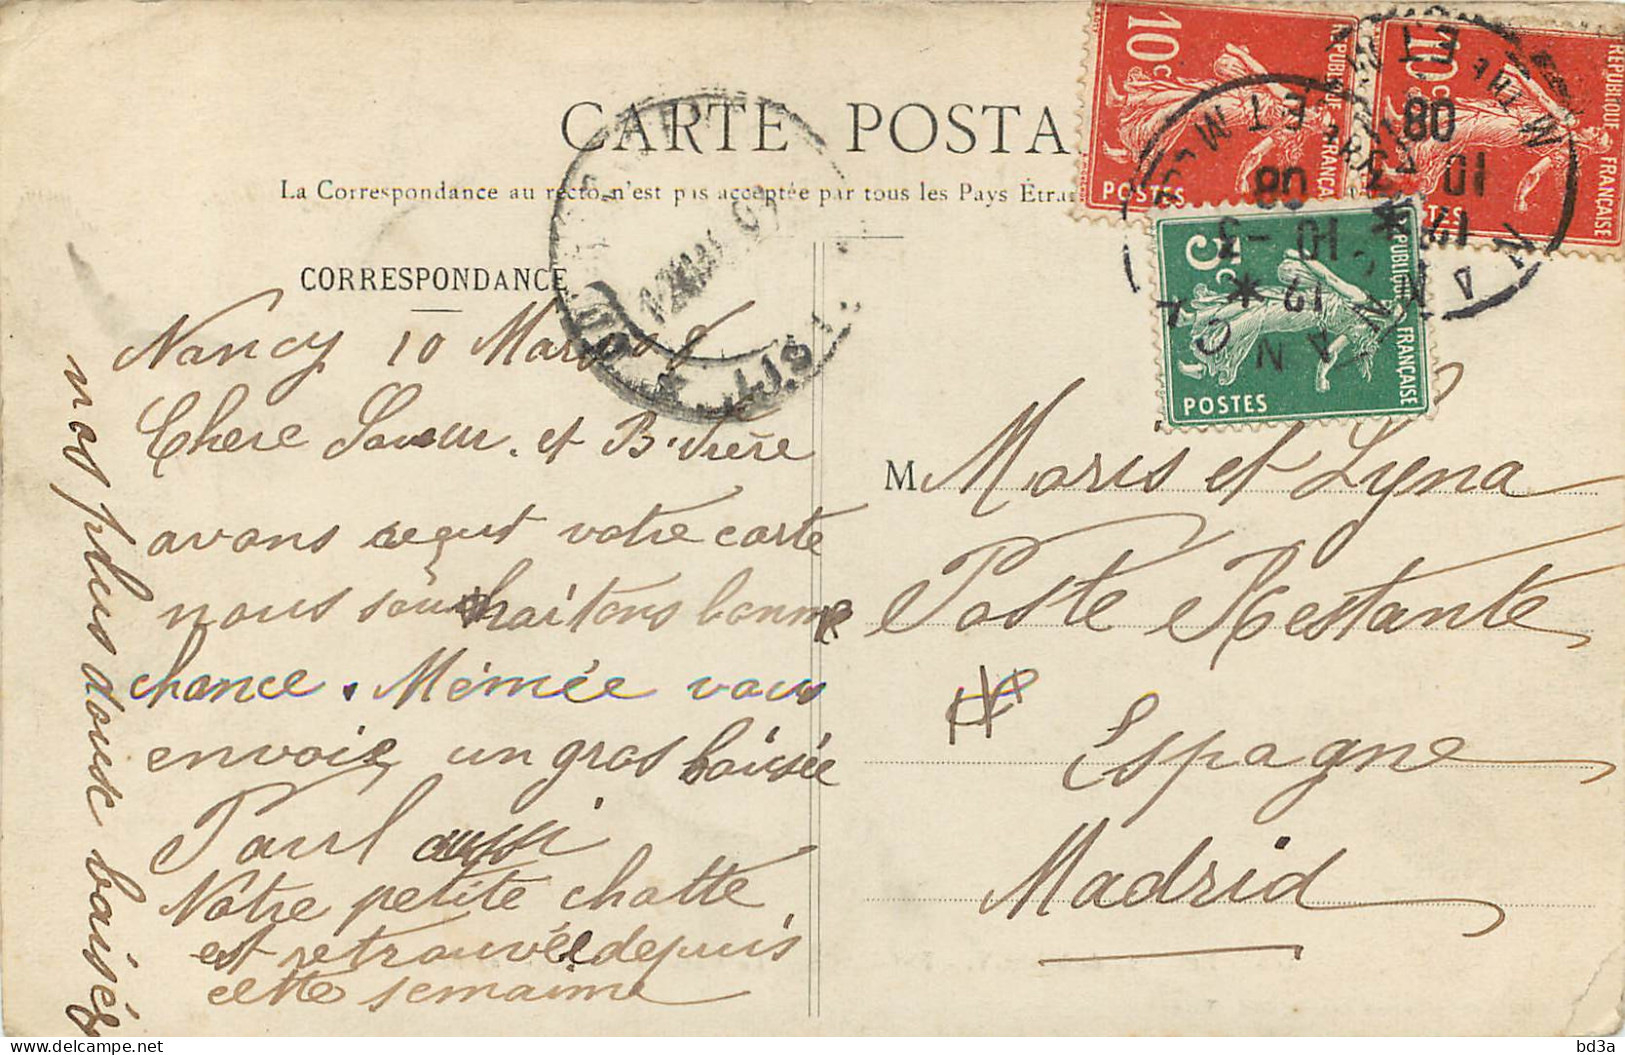 CARTE POSTA
La Correspondance au recto n'est pas acceptée par tous les Pays Étra
CORRESPONDANCE
Nancy 10 Mars
Chere Soeur et B. Frère
avons reçut votre carte
nous souhaitons bonne
chance. Mémée vous
envoie un gros baisée
Paul aussi
Notre petite chatte
est retrouvée depuis
cette semaine
nos plus douse baisée
10c
REPUBLIQUE FRANÇAISE
POSTES
10c
REPUBLIQUE FRANÇAISE
POSTES
5c
REPUBLIQUE FRANÇAISE
POSTES
NANCY
MEURTHE ET M
19
10 -3
08
M Maris et Lyna
Poste Restante
Espagne
Madrid
bd3a